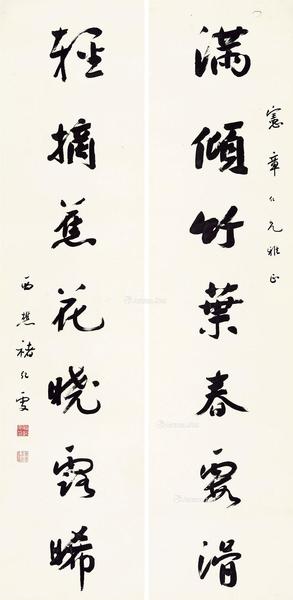 憲章仁兄雅正
滿傾竹葉春霞滑
輕摘蕉花曉露晞
西樵褚仁雯